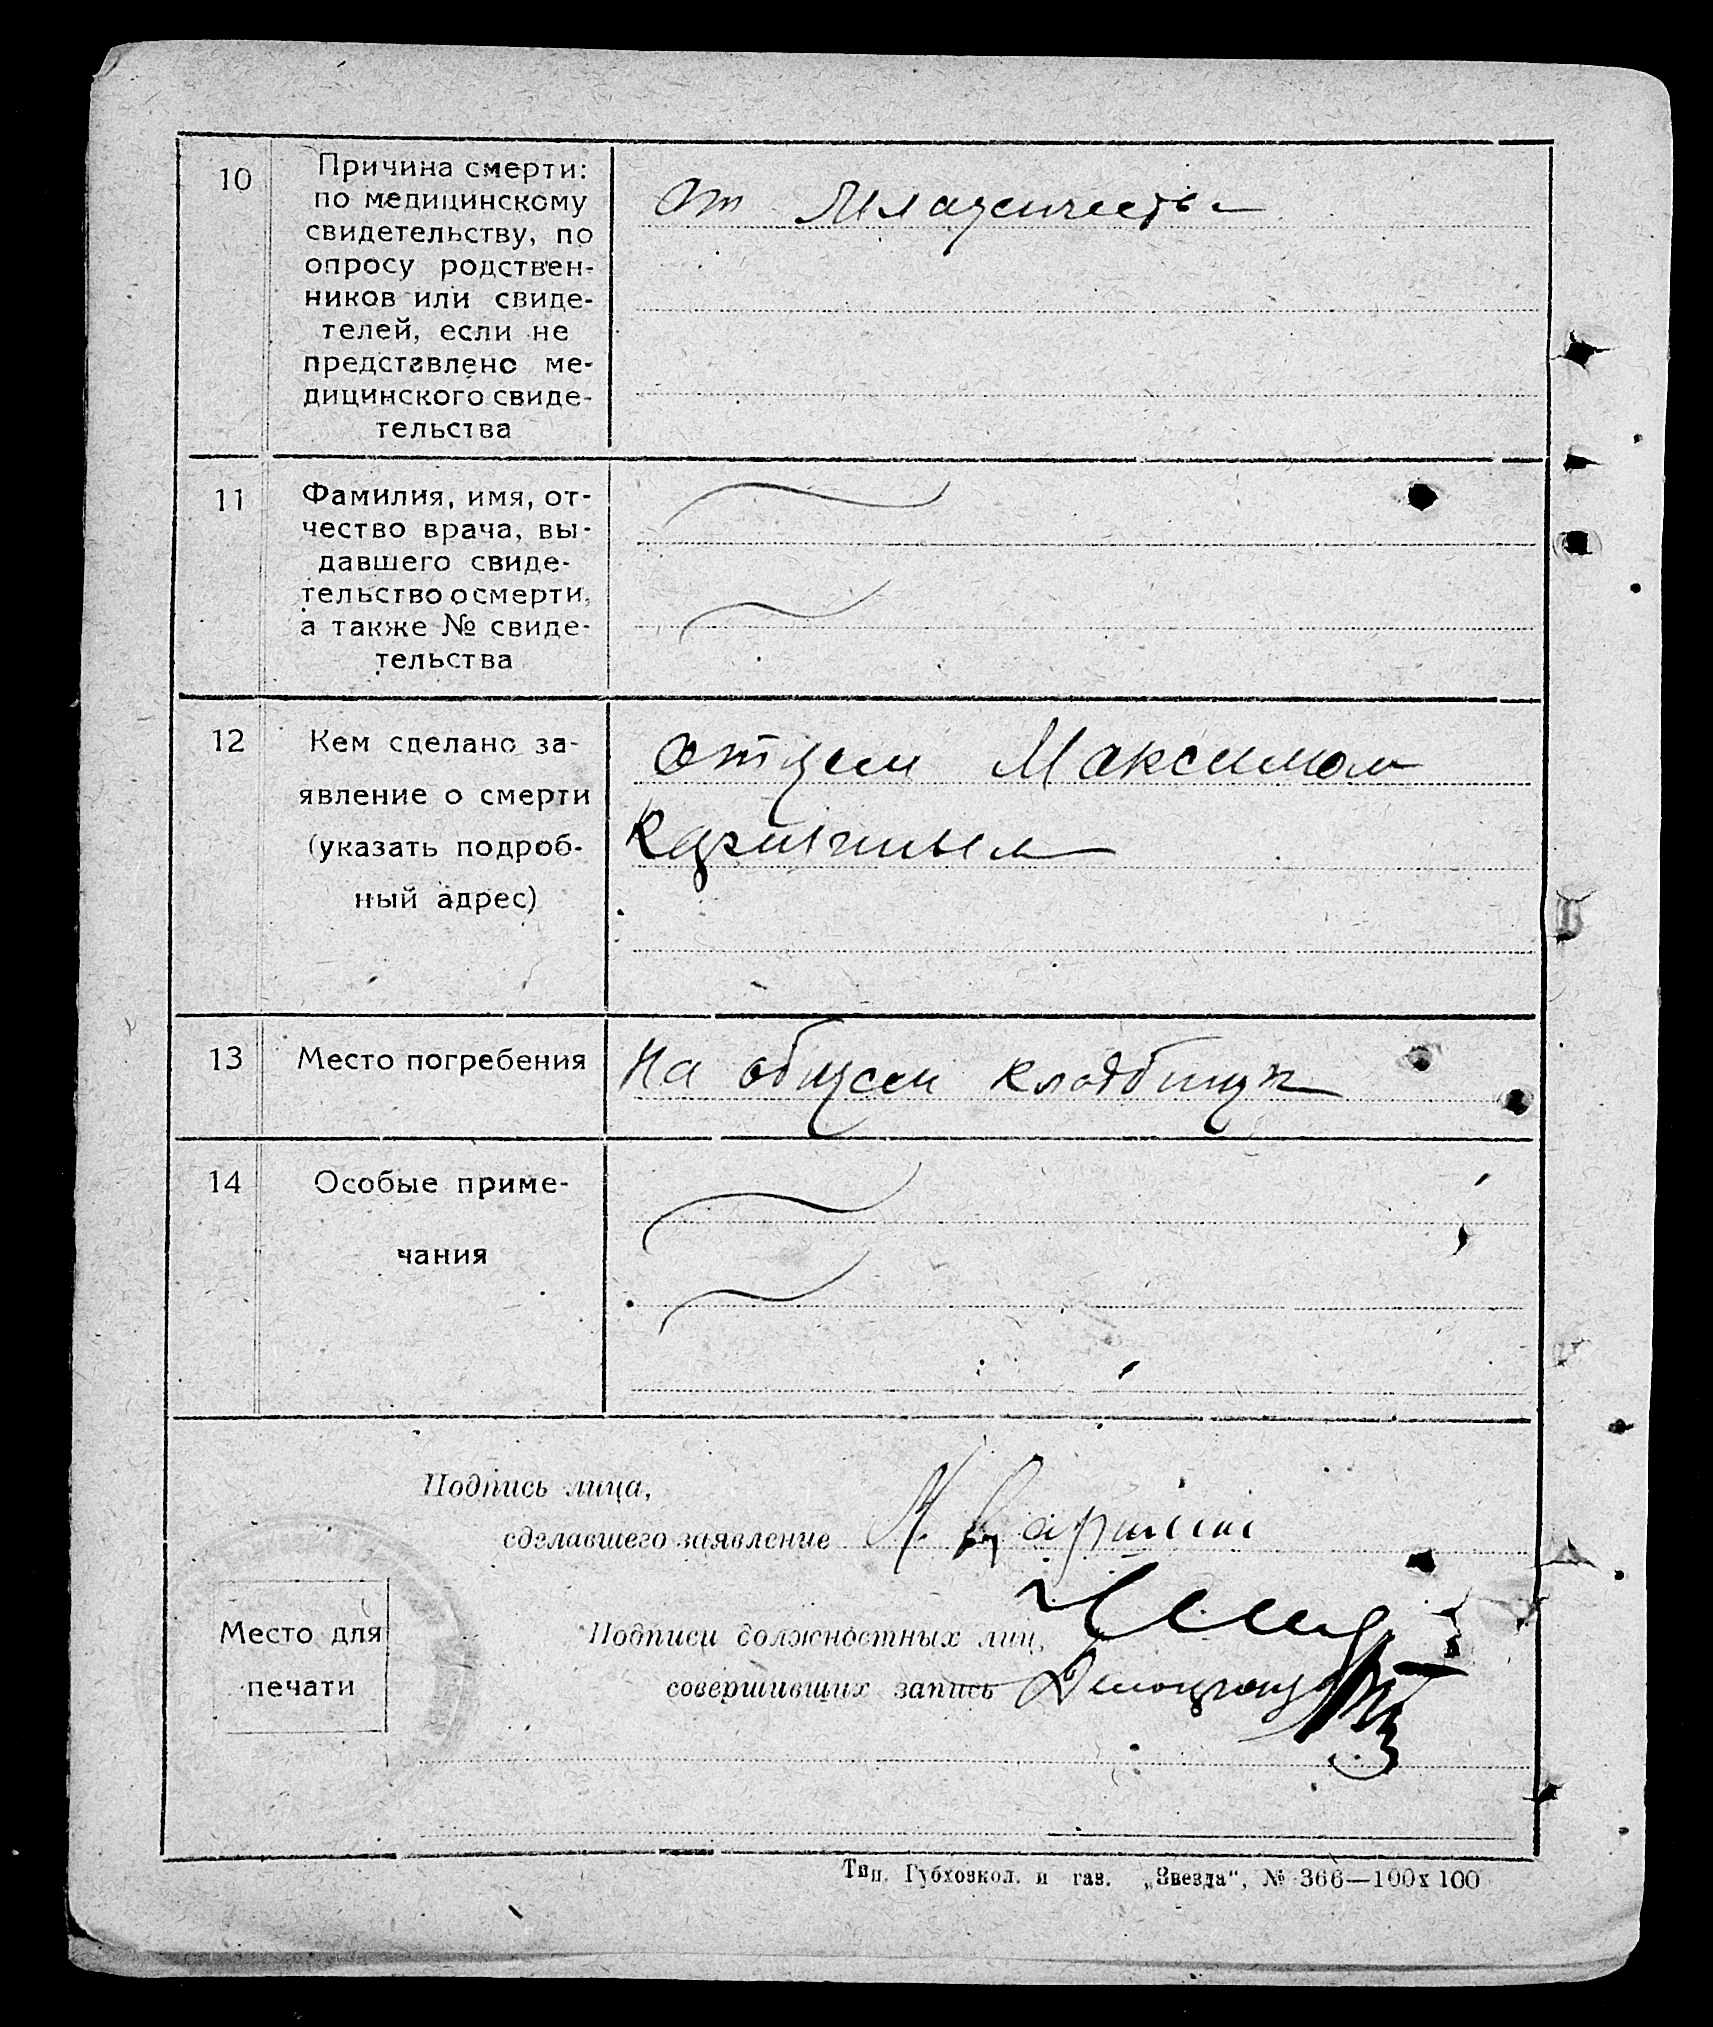 10 Причина смерти:
по медицинскому
свидетельству, по
опросу родствен-
ников или свиде-
телей, если не
представлено ме-
дицинского свиде-
тельства
От Младенчества
11 Фамилия, имя, от-
чество врача, вы-
давшего свиде-
тельство о смерти,
а также № свиде-
тельства
12 Кем сделано за-
явление о смерти
(указать подроб-
ный адрес)
отцем Максимом
13 Место погребения
На общем кладбище
14 Особые приме-
чания
Подпись лица,
сделавшего заявление М.
Место для
печати
Подписи должностных лиц,
совершивших запись
Тип. Губхозкол. и газ. „Звезда“, № 366—100х100